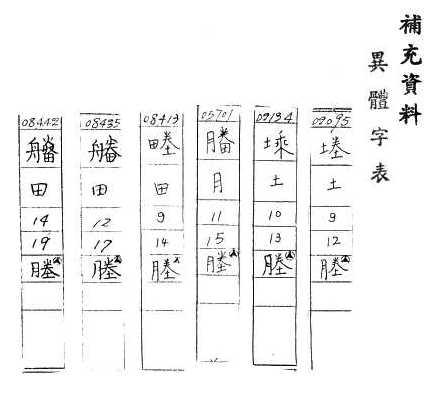 補充資料
異體字表
02095
土
9
12
塍
02134
堘
土
10
13
塍
05701
月
11
15
塍
08413
田
9
14
塍
08435
田
12
17
塍
08442
田
14
19
塍